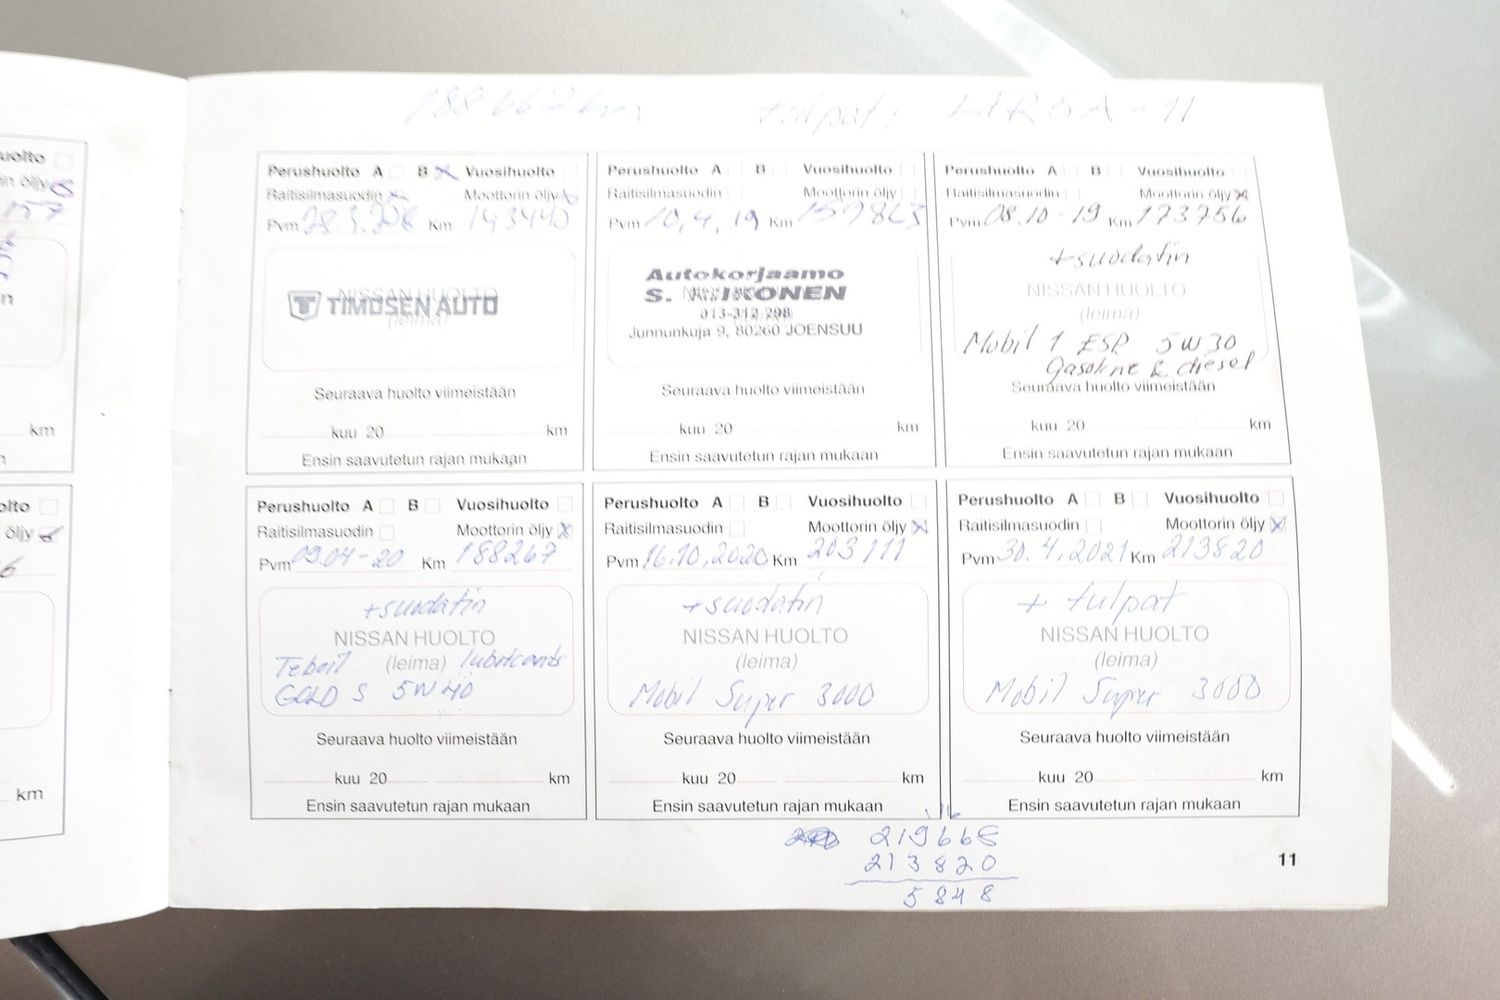 tulpat: LFR5A-11
Perushuolto A B Vuosihuolto
Raitisilmasuodin Moottorin öljy
Pvm Km 143440
NISSAN HUOLTO
TIMOSEN AUTO
(leima)
Seuraava huolto viimeistään
kuu 20 km
Ensin saavutetun rajan mukaan
Perushuolto A B Vuosihuolto
Raitisilmasuodin Moottorin öljy
Pvm 10.4.19 Km 159863
Autokorjaamo
S.
Junnunkuja 9, 80260 JOENSUU
Seuraava huolto viimeistään
kuu 20 km
Ensin saavutetun rajan mukaan
Perushuolto A B Vuosihuolto
Raitisilmasuodin Moottorin öljy
Pvm 08.10-19 Km 173756
+suodatin
NISSAN HUOLTO
(leima)
Mobil 1 ESP 5W30
Gasoline & diesel
Seuraava huolto viimeistään
kuu 20 km
Ensin saavutetun rajan mukaan
Perushuolto A B Vuosihuolto
Raitisilmasuodin Moottorin öljy
Pvm 09.04-20 Km 188267
+suodatin
NISSAN HUOLTO
Teboil (leima) lubricants
GOLD S 5W40
Seuraava huolto viimeistään
kuu 20 km
Ensin saavutetun rajan mukaan
Perushuolto A B Vuosihuolto
Raitisilmasuodin Moottorin öljy
Pvm 16.10.2020 Km 203111
+suodatin
NISSAN HUOLTO
(leima)
Mobil Super 3000
Seuraava huolto viimeistään
kuu 20 km
Ensin saavutetun rajan mukaan
Perushuolto A B Vuosihuolto
Raitisilmasuodin Moottorin öljy
Pvm 30.4.2021 Km 213820
+ tulpat
NISSAN HUOLTO
(leima)
Mobil Super 3000
Seuraava huolto viimeistään
kuu 20 km
Ensin saavutetun rajan mukaan
219668
213820
5848
11
km
km